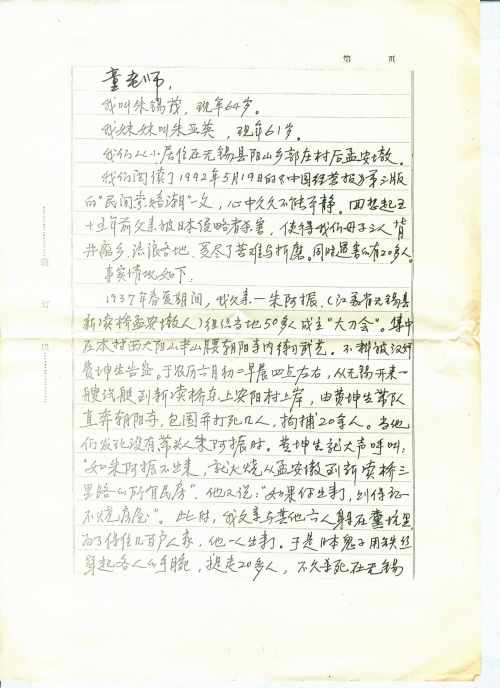 第 页
童老师,
我叫朱锡茂,现年64岁。
我妹妹叫朱亚英,现年61岁。
我们从小居住在无锡县阳山乡部庄村后孟安墩。
我们阅读了1992年5月19日的《中国经营报》第三版
的"民间索赔潮"一文,心中久久不能平静。回想起五
十五年前父亲被日本侵略者杀害,使得我们母子三人背
井离乡、流浪各地、受尽了苦难与折磨。同时遇害的有20多人。
事实情况如下:
1937年春夏期间,我父亲—朱阿振、(江苏省无锡县
新渎桥孟安墩人)组织当地50多人成立"大刀会"。集中
在本村西大阳山半山腰朝阳寺内练习武艺。不料被汉奸
黄坤生告密。于农历六月初二早晨四点左右,从无锡开来一
艘汽艇到新渎桥东上安阳村上岸,由黄坤生带队
直奔朝阳寺,包围并打死几人,拘捕20多人。当他
们发现没有带头人朱阿振时。黄坤生就大声呼叫:
"如朱阿振不出来,就火烧从孟安墩到新渎桥三
里路的所有民房"他又说:"如果你出来,则保证
不烧房屋"。此时,我父亲与其他六人身在里
为了保住几百户人家,他一人出来。于是日本鬼子用铁丝
穿起各人的手腕,捉走20多人,不久杀死在无锡
装 订 线